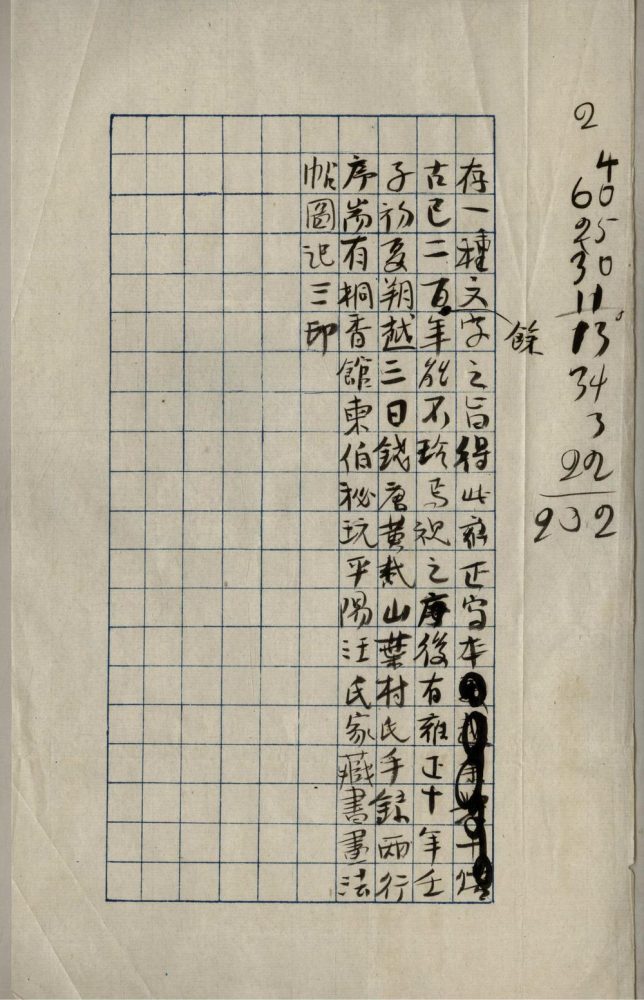 存一種文字之旨得此雍正寫本
古已二百餘年能不珍焉視之序後有雍正十年壬
子初夏朔越三日錢唐黃戡山葉村氏手錄兩行
序耑有桐香館東伯秘玩平陽汪氏家藏書畫法
帖圖記三印
2
4
60
25
30
11
13
34
3
22
202